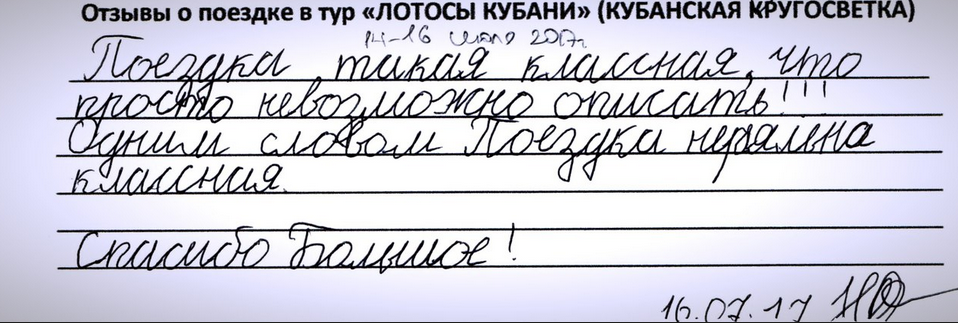 Отзывы о поездке в тур «ЛОТОСЫ КУБАНИ» (КУБАНСКАЯ КРУГОСВЕТКА)
14-16 июля 2017г.
Поездка такая классная, что
просто невозможно описать!!!
Одним словом Поездка нереально
классная.
Спасибо Большое!
16.07.17